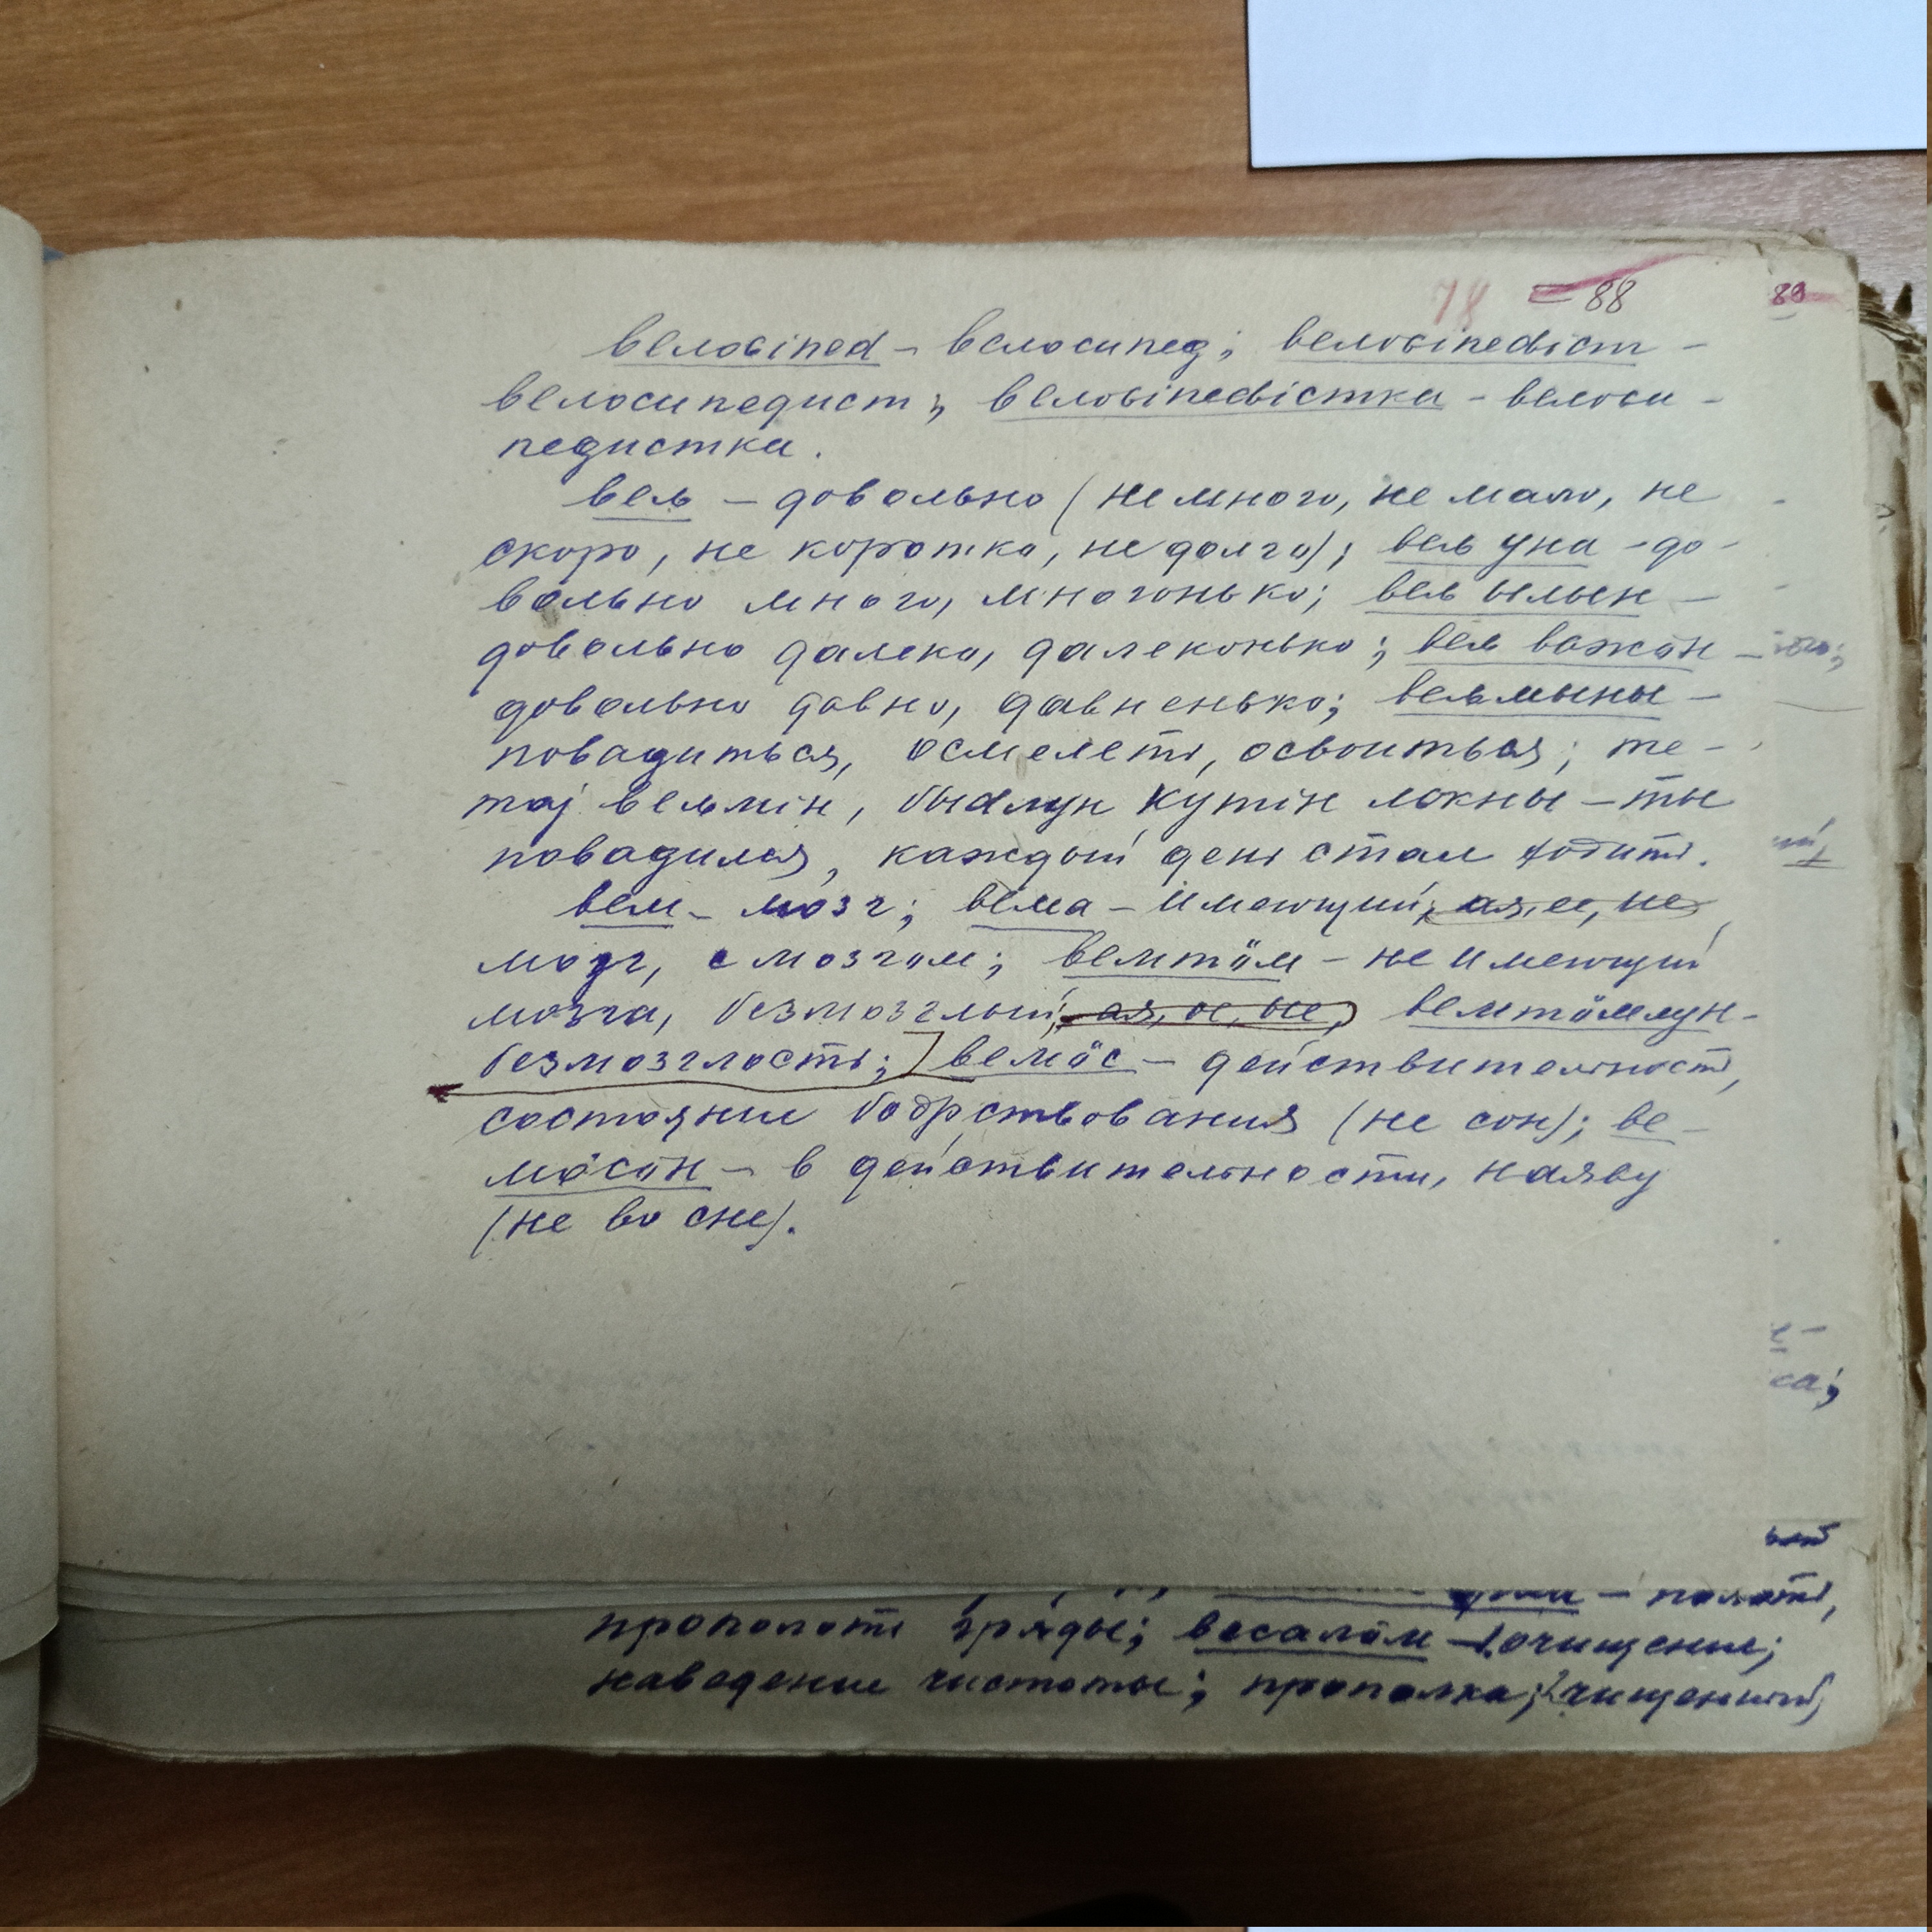 78 = 88 89
велосіпеd – велосипед; велосіпеdіст –
велосипедист; велосіпеdістка – велоси-
педистка.
вель – довольно (не много, не мало, не
скоро, не коротко, не долго); вель уна – до-
вольно много, многонько; вель ылын –
довольно далеко, далеконько; вель важӧн –
довольно давно, давненько; вельмыны –
повадиться, осмелеть, освоиться; те-
тај вельмін, быdлун кутін локны – ты
повадился, каждый день стал ходить.
вем – мозг; вема – имеющий, ая, ее, ие
мозг, с мозгом; вемтӧм – не имеющий
мозга, безмозглый, ая, ое, ые, вемтӧмлун –
безмозглость; вемӧс – действительность,
состояние бодрствования (не сон); ве-
мӧсӧн – в действительности, наяву
(не во сне).
– полоть,
прополоть гряды; весалӧм – очищение;
наведение чистоты; прополка; чищенный,